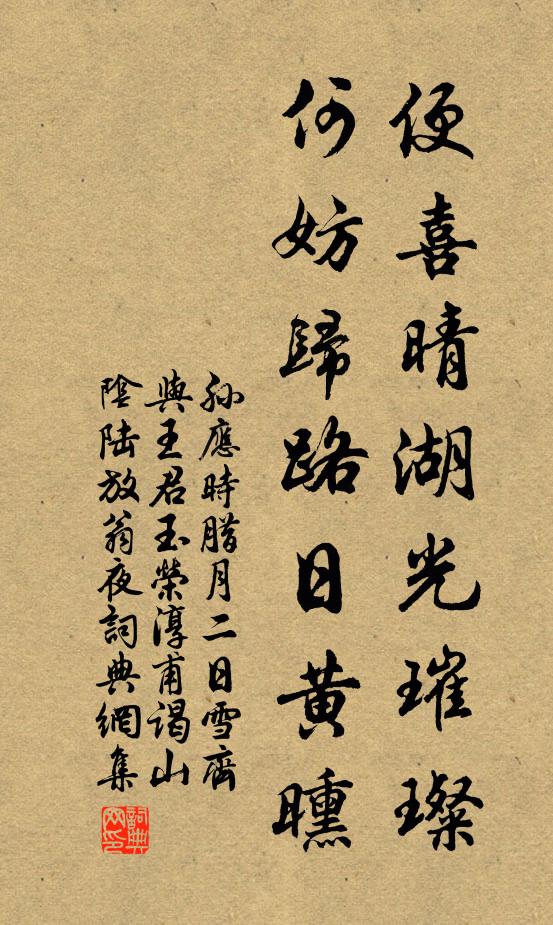 便喜晴湖光璀璨
何妨歸路日黃曛
孫應時腊月二日雪齊
與王君玉榮淳甫謁山
陰陆放翁夜詞典網集
詞典网印